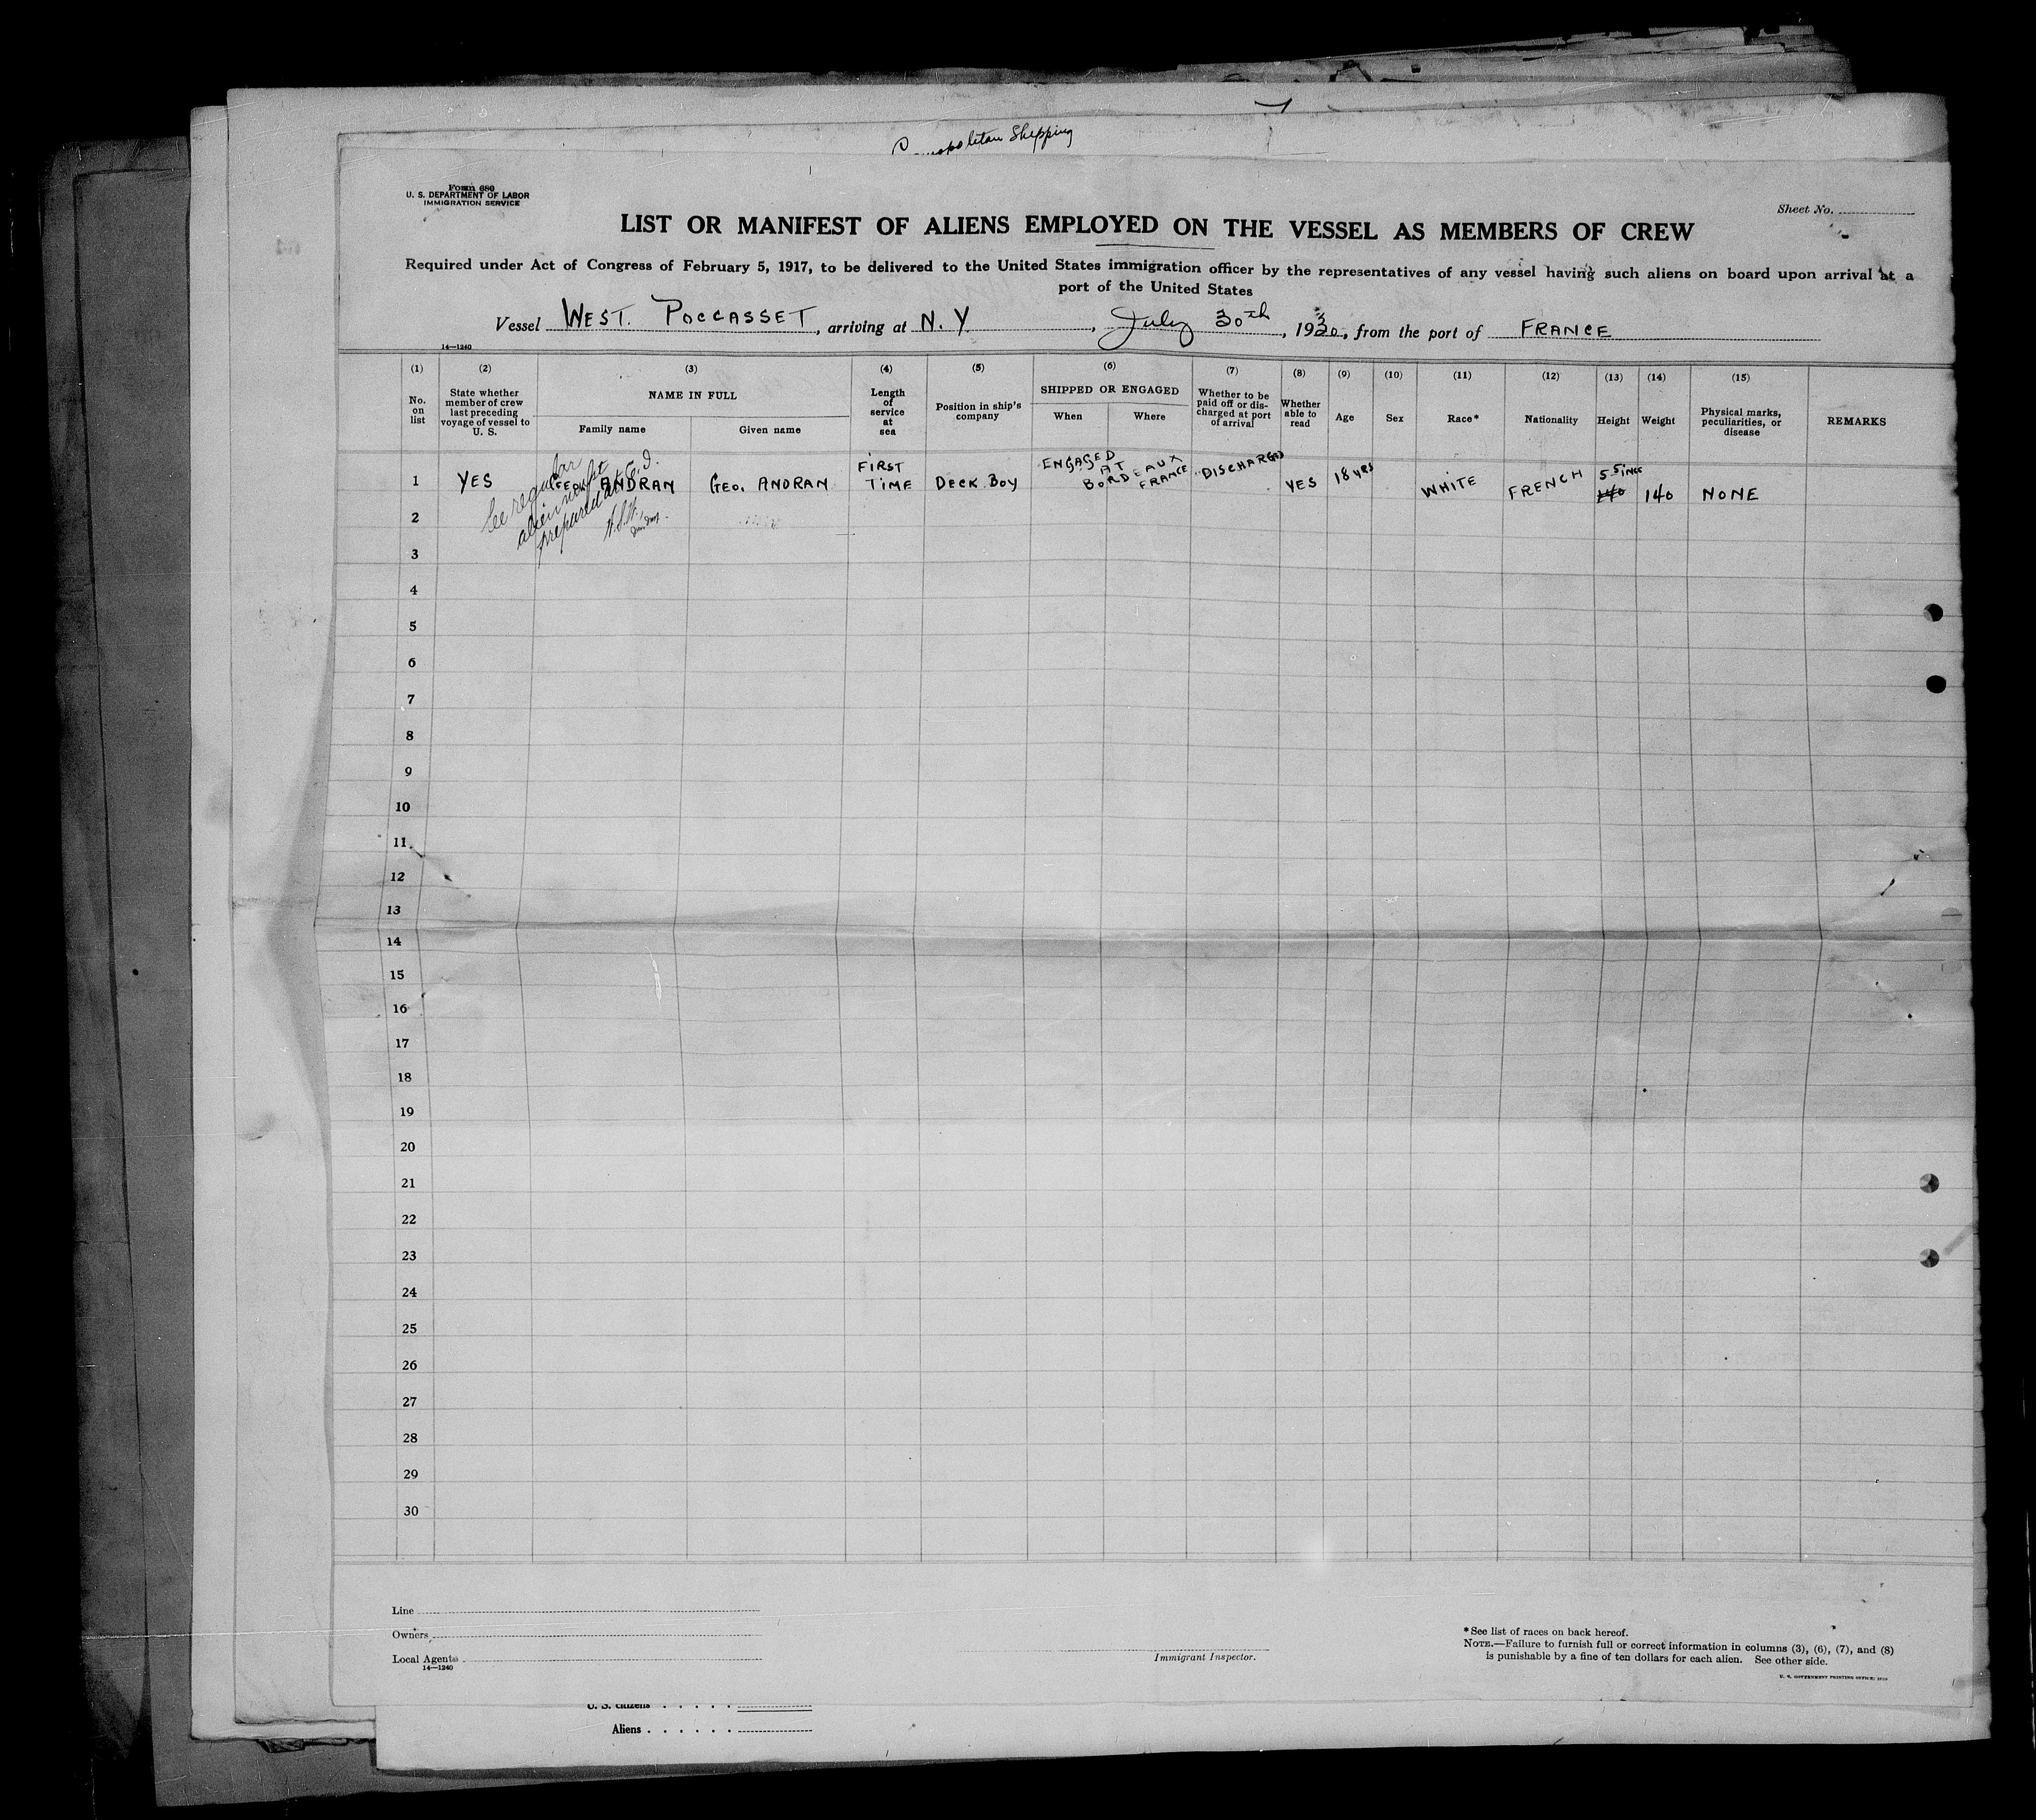 Cosmopolitan Shipping
Form 680
U. S. DEPARTMENT OF LABOR
IMMIGRATION SERVICE
Sheet No.
LIST OR MANIFEST OF ALIENS EMPLOYED ON THE VESSEL AS MEMBERS OF CREW
Required under Act of Congress of February 5, 1917, to be delivered to the United States immigration officer by the representatives of any vessel having such aliens on board upon arrival at a
port of the United States
Vessel WEST. POCCASSET, arriving at N. Y., July 30th, 1930, from the port of FRANCE
14—1240
(1) (2) (3) (4) (5) (6) (7) (8) (9) (10) (11) (12) (13) (14) (15)
No. on list
State whether member of crew last preceding voyage of vessel to U. S.
NAME IN FULL
Family name
Given name
Length of service at sea
Position in ship's company
SHIPPED OR ENGAGED
When
Where
Whether to be paid off or discharged at port of arrival
Whether able to read
Age
Sex
Race*
Nationality
Height
Weight
Physical marks, peculiarities, or disease
REMARKS
1 YES ANDRAN GEO. ANDRAN FIRST TIME DECK BOY ENGAGED AT BORDEAUX FRANCE DISCHARGED YES 18 YRS WHITE FRENCH 5 5 INCE 140 140 NONE
See regular
alien manifst
prepared at E.I.
2
3
4
5
6
7
8
9
10
11
12
13
14
15
16
17
18
19
20
21
22
23
24
25
26
27
28
29
30
Line
Owners
Local Agents
14—1240
Immigrant Inspector.
*See list of races on back hereof.
NOTE.—Failure to furnish full or correct information in columns (3), (6), (7), and (8)
is punishable by a fine of ten dollars for each alien. See other side.
U. S. citizens
Aliens